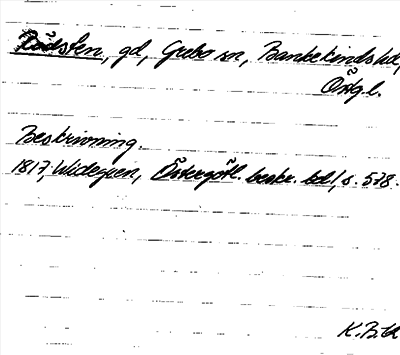 Rödsten, gd, Grebo sn, Bankekinds hd,
Östgl.
Beskrivning.
1817, Widegren, Östergötl. beskr. bd 1, s. 578.
K.B.